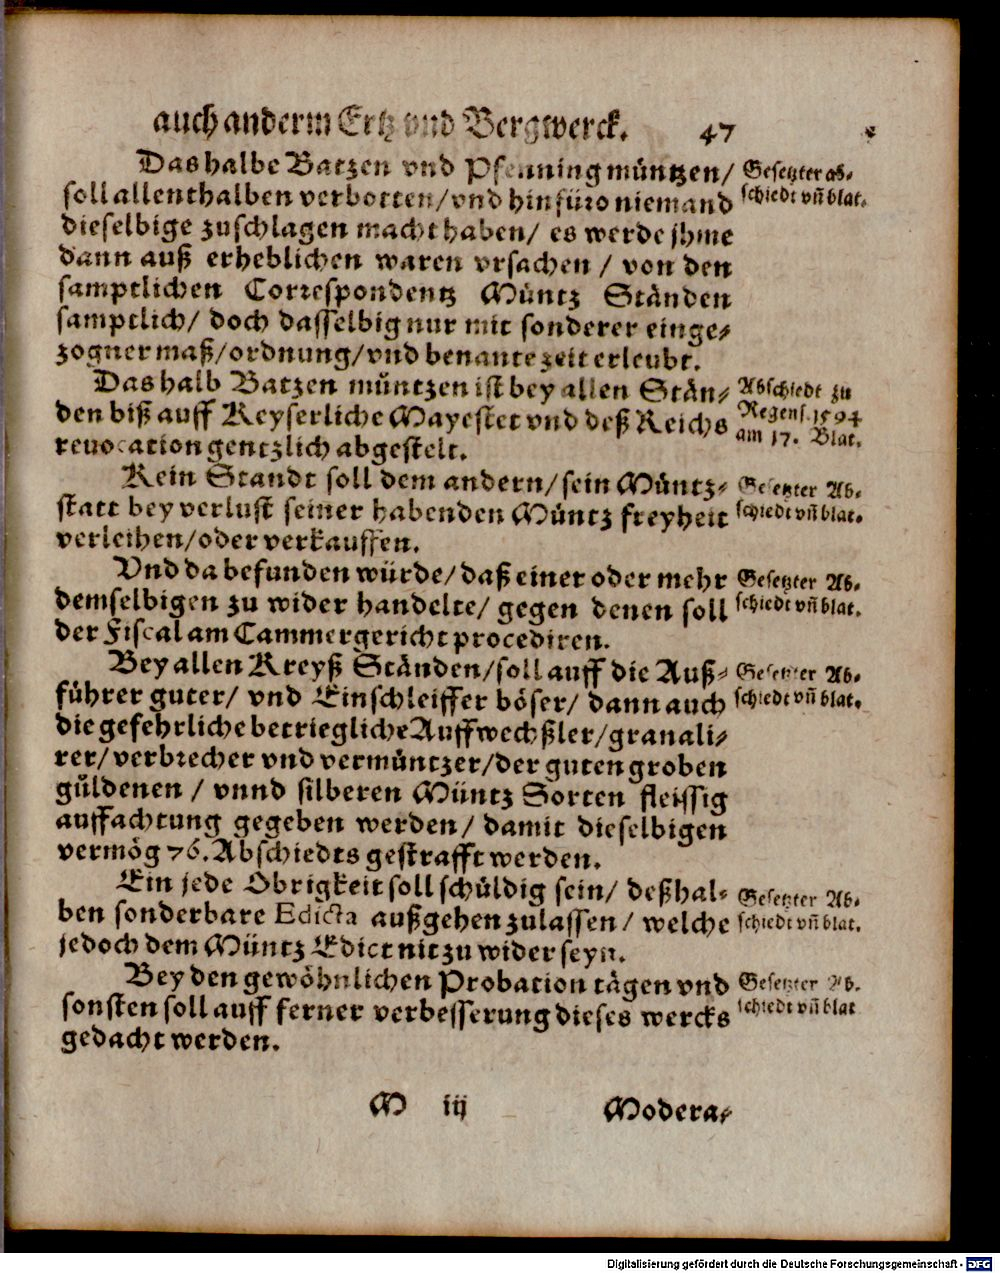 auch anderm Ertz vnd Bergwerck. 47
Das halbe Batzen vnd Pfenning müntzen/
soll allenthalben verbotten/vnd hinfüro niemand
dieselbige zuschlagen macht haben/ es werde jhme
dann auß erheblichen waren vrsachen / von den
samptlichen Correspondentz Müntz Ständen
samptlich/ doch dasselbig nur mit sonderer einge-
zogner maß/ordnung/vnd benante zeit erleubt.
Gesetzter ab-
schiedt vn̄ blat.
Das halb Batzen müntzen ist bey allen Stän-
den biß auff Keyserliche Mayestet vnd deß Reichs
revocation gentzlich abgestelt.
Abschiedt zu
Regens. 1594
am 17. Blat.
Kein Standt soll dem andern/sein Müntz-
statt bey verlust seiner habenden Müntz freyheit
verleihen/oder verkauffen.
Gesetzter Ab-
schiedt vn̄ blat.
Vnd da befunden würde/daß einer oder mehr
demselbigen zu wider handelte/ gegen denen soll
der Fiscal am Cammergericht procediren.
Gesetzter Ab-
schiedt vn̄ blat.
Bey allen Kreyß Ständen/soll auff die Auß-
führer guter/ vnd Einschleiffer böser/ dann auch
die gefehrliche betriegliche Auffwechßler/granali-
rer/verbrecher vnd vermüntzer/der guten groben
güldenen / vnnd silberen Müntz Sorten fleissig
auffachtung gegeben werden/ damit dieselbigen
vermög 76. Abschiedts gestrafft werden.
Gesetzter Ab-
schiedt vn̄ blat.
Ein jede Obrigkeit soll schüldig sein/ deßhal-
ben sonderbare Edicta außgehen zulassen/ welche
jedoch dem Müntz Edict nit zu wider seyn.
Gesetzter Ab-
schiedt vn̄ blat.
Bey den gewöhnlichen Probation tägen vnd
sonsten soll auff ferner verbesserung dieses wercks
gedacht werden.
Gesetzter Ab-
schiedt vn̄ blat
M iij Modera-
Digitalisierung gefördert durch die Deutsche Forschungsgemeinschaft - DFG